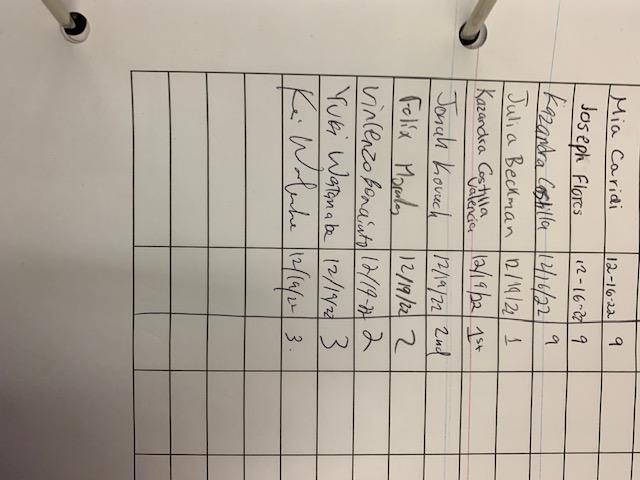 Mia Caridi 12-16-22 9
Joseph Flores 12-16-22 9
Kazandra Costilla 12/16/22 9
Julia Beckman 12/19/22 1
Kazandra Costilla Valencia 12/19/22 1st
Jonah Kovach 12/19/22 2nd
Felix Morales 12/19/22 2
Vincenzo Bonaiuto 12/19-22 2
Yuki Watanabe 12/19/22 3
Kei 12/19/22 3.